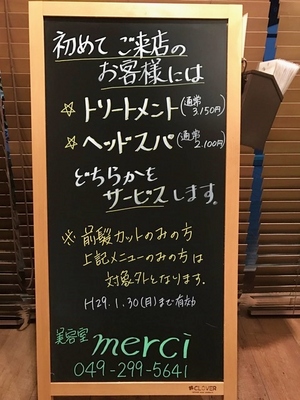 初めて ご来店の
お客様には
☆ トリートメント(通常 3,150円)
☆ ヘッドスパ(通常 2,100円)
どちらかを
サービスします。
※ 前髪カットのみの方
上記メニューのみの方は
対象外となります。
H29.1.30(月)まで有効
美容室 merci
049-299-5641
CLOVER